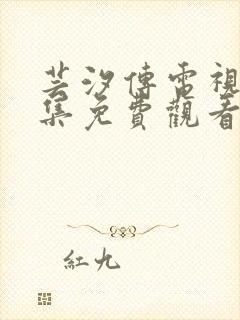 芸汐傳電視
集免費觀看
紅九